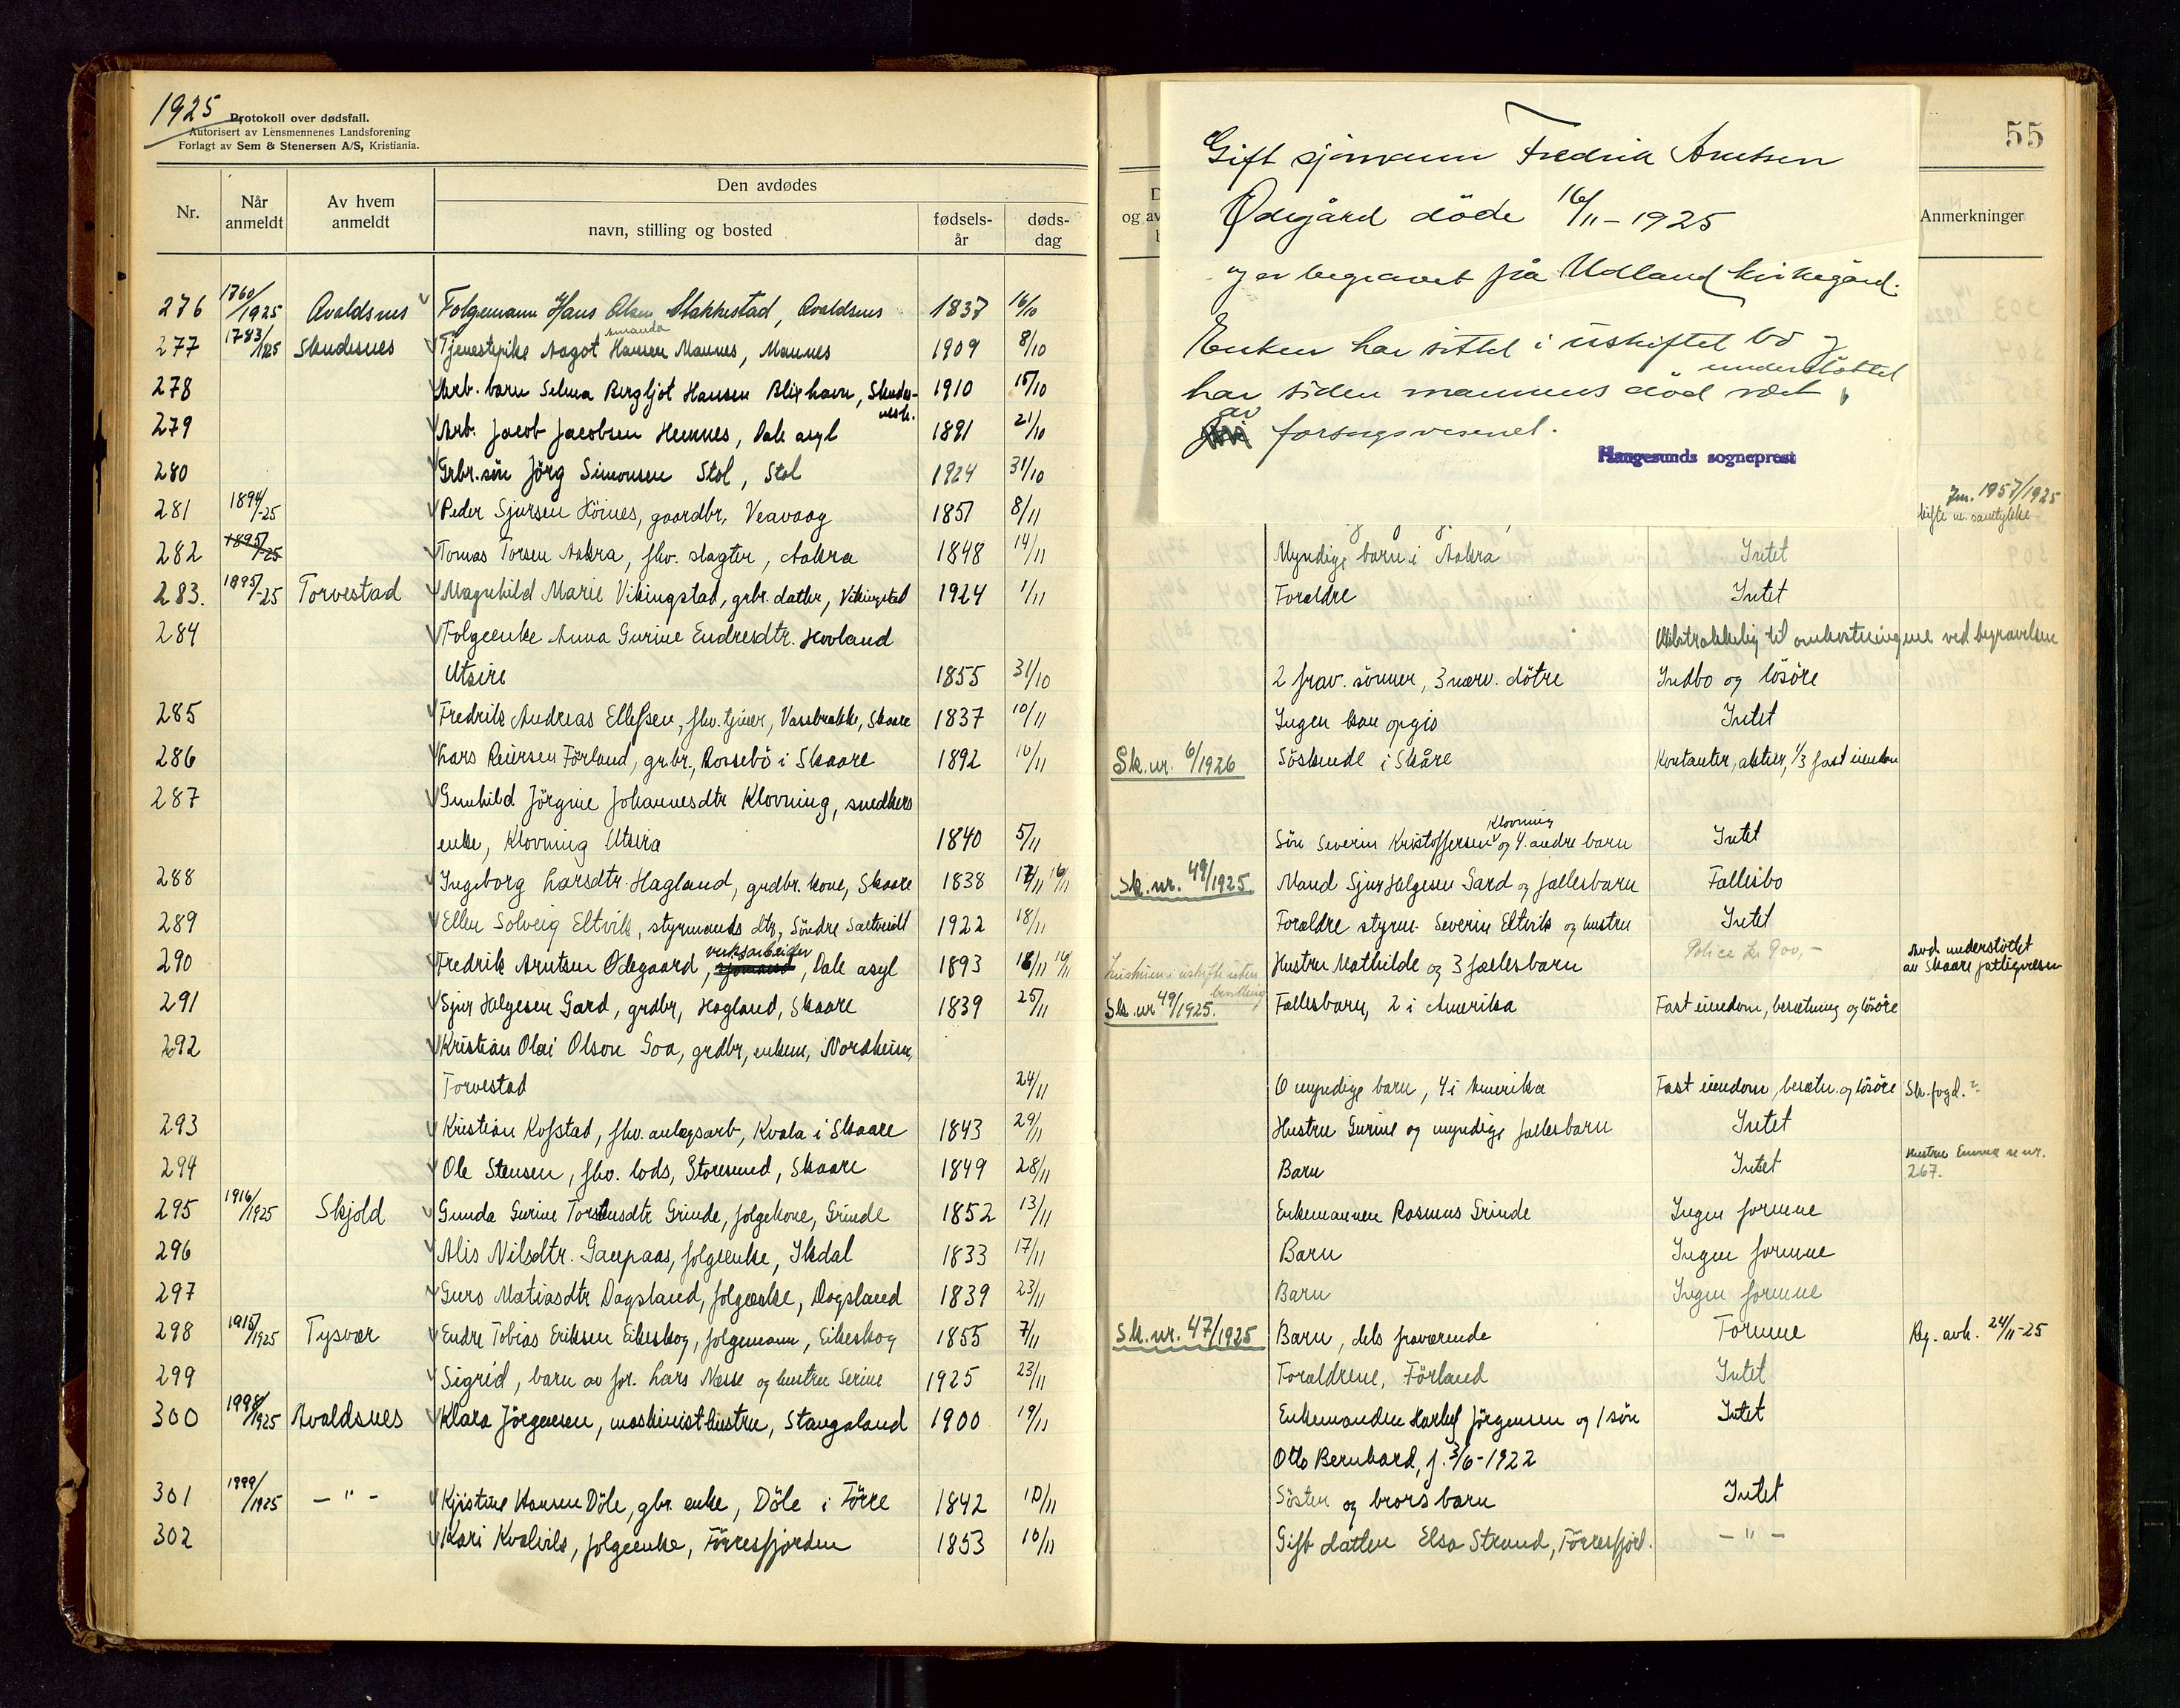 1925
Protokoll over dødsfall.
Autorisert av Lensmennenes Landsforening
Forlagt av Sem & Stenersen A/S, Kristiania.
Nr.
Når anmeldt
Av hvem anmeldt
Den avdødes
navn, stilling og bosted
fødsels-år
døds-dag
276 1760/1925 Avaldsnes Folgemann Hans Olsen Stakkestad, Avaldsnes 1837 16/10
277 1783/1925 Skudesnes Tjenestepike Aagot Smanda Hansen Mannes, Mannes 1909 8/10
278 Arb. barn Selma Bergljot Hansen Blixhavn, Skudes-nesh. 1910 15/10
279 Arb. Jacob Jacobsen Hemnes, Dale asyl 1891 21/10
280 Grbr. søn Jörg Simonsen Stol, Stol 1924 31/10
281 1894/-25 Peder Sjursen Höines, gaardbr, Veavaag 1851 8/11
282 1895/-25 Tomas Torsen Aakra, fhv. slagter, Aakra 1848 14/11
283. 1895/-25 Torvestad Magnhild Marie Vikingstad, grbr. datter, Vikingstad 1924 1/11
284 Folgeenke Anna Gurine Endresdtr. Hovland
Utsire 1855 31/10
285 Fredrik Andreas Ellefsen, fhv. tjener, Vassbrakke, Skaare 1837 10/11
286 Lars Reiersen Förland, gr.br., Rossebö i Skaare 1892 10/11
287 Gunhild Jörgine Johannesdtr Klovning, snedkers
enke, Klovning Utsira 1840 5/11
288 Ingeborg Larsdtr. Hagland, grdbr. kone, Skaare 1838 17/11 16/11
289 Ellen Solveig Eltvik, styrmands dtr, Söndre Saltveidt 1922 18/11
290 Fredrik Arntsen Ödegaard, sjömand verksarbeider, Dale asyl 1893 18/11 16/11
291 Sjur Helgesen Gard, grdbr, Hagland, Skaare 1839 25/11
292 Kristian Olai Olson Goa, grdbr, enkem, Nordheim,
Torvestad 24/11
293 Kristian Kofstad, fhv. anlegsarb, Kvala i Skaare 1843 29/11
294 Ole Stensen, fhv. lods, Storesund, Skaare 1849 28/11
295 1916/1925 Skjold Gunda Gurine Torstensdtr Grinde, folgekone, Grinde 1852 13/11
296 Alis Nilsdtr. Gaupaas, folgeenke, Ikdal 1833 17/11
297 Guro Matiasdtr Dagsland, folgeenke, Dagsland 1839 23/11
298 1915/1925 Tysvær Endre Tobias Eriksen Eikeskog, folgemann, Eikeskog 1855 7/11
299 Sigrid, barn av for. Lars Nesse og hustru Serine 1925 23/11
300 1998/1925 Avaldsnes Klara Jörgensen, maskinisthustru, Stangaland 1900 19/11
301 1999/1925 - " - Kjistine Hansen Döle, gbr. enke, Döle i Förre 1842 10/11
302 Kari Kvalvik, folgeenke, Förresfjorden 1853 10/11
Gift sjømann Fredrik Arntsen
Ødegård döde 16/11-1925
og er begravet på Udland kirkegård.
Enken har sittet i uskiftet bo og
har siden mannens död vært understöttet
av forsorgsvesenet.
Haugesunds sogneprest
55
og av
Anmerkninger
Jnr. 1957/1925
skifte m. samtykke
Myndige barn i Aakra Intet
Foreldre Intet
Utilstrækkelig til omkostningene ved begravelsen
2 frav. sönner, 3 nærv. dötre Indbo og lösöre
Ingen kan opgis Intet
Sk. nr. 6/1926 Söskende i Skåre Kontanter, aktier, 1/3 fast eiendom
Sön Severin Kristoffersen Klovning og 4 andre barn Intet
Sk. nr. 49/1925 Mand Sjur Helgesen Gard og fællesbarn Fællesbo
Foreldre styrm. Severin Eltvik og hustru Intet
Hustruen i uskifte uten bevilling Hustru Mathilde og 3 fællesbarn Police kr 900,- Avd. understöttet av Skaare fattigvesen
Sk. nr 49/1925. Fællesbarn, 2 i Amerika Fast eiendom, besætning og lösöre
6 myndige barn, 4 i Amerika Fast eiendom, besætn. og lösöre Sk. fogd.
Hustru Gurine og myndige fællesbarn Intet
Barn Intet Hustru Emma se nr. 267.
Enkemannen Rasmus Grinde Ingen formue
Barn Ingen formue
Barn Ingen formue
Sk. nr. 47/1925 Barn, dels fraværende Formue Reg. avh. 24/11-25
Foreldrene, Förland Intet
Enkemanden Harluf Jörgensen og 1 sön Intet
Otto Bernhard, f. 3/6-1922
Söster og brors barn Intet
Gift datter Elsa Strand, Förresfjord. - " -